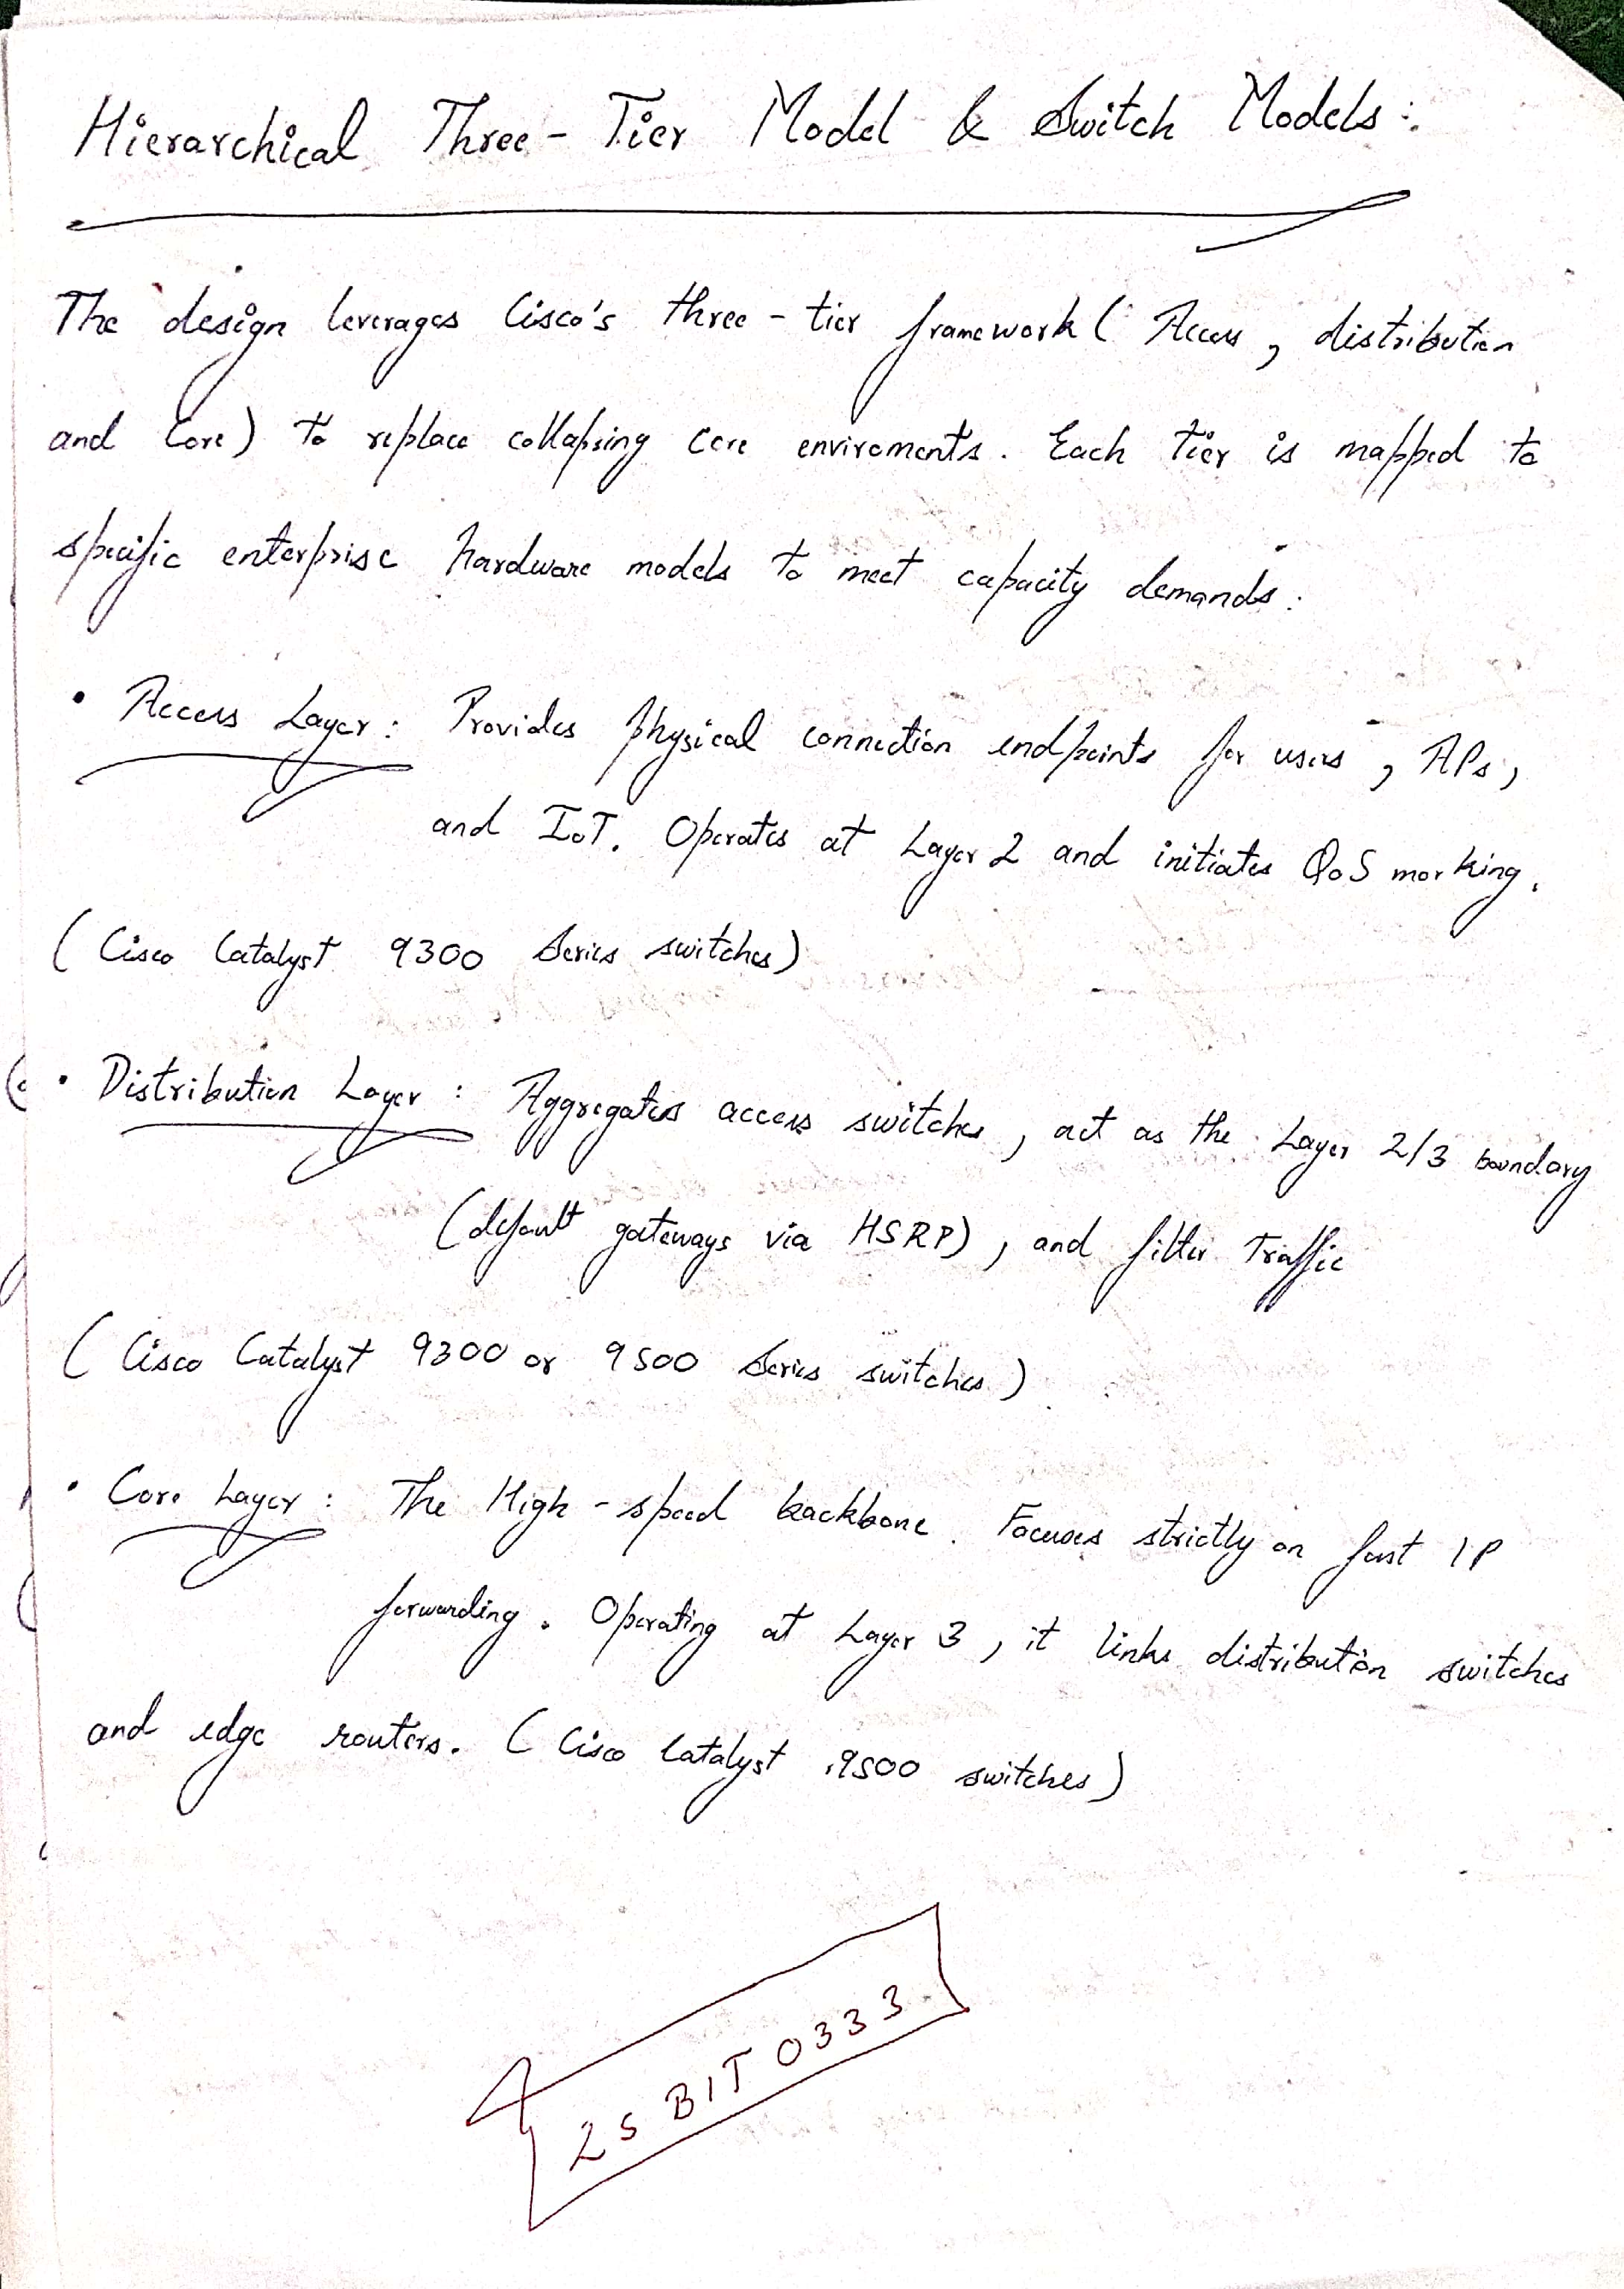 Hierarchical Three-Tier Model & Switch Models:
The design leverages Cisco's three-tier framework (Access, distribution
and Core) to replace collapsing core enviroments. Each tier is mapped to
specific enterprise hardware models to meet capacity demands:
• Access Layer: Provides physical connection endpoints for users, APs,
and IoT. Operates at Layer 2 and initiates QoS marking.
(Cisco Catalyst 9300 Series switches)
• Distribution Layer: Aggregates access switches, act as the Layer 2/3 boundary
(default gateways via HSRP), and filter Traffic
(Cisco Catalyst 9300 or 9500 Series switches)
• Core Layer: The High-speed backbone. Focuses strictly on fast IP
forwarding. Operating at Layer 3, it links distribution switches
and edge routers. (Cisco Catalyst 9500 switches)
25BIT0333